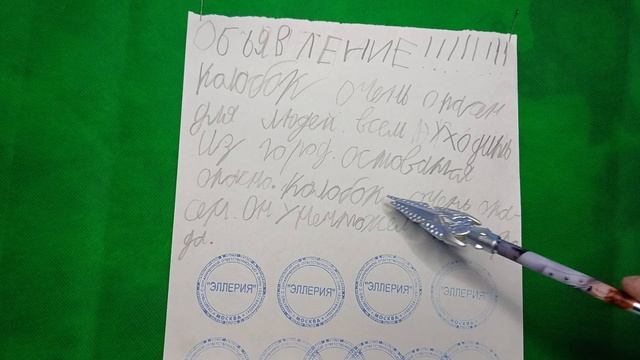 ОБЪЯВЛЕНИЕ!!!!!!!!
Колобок очень опасен
для людей. всем нуходить
из город. оставатся
опасно. Колобок очень опа-
сен. Он уничтожел
да.
"ЭЛЛЕРИЯ" "ЭЛЛЕРИЯ" "ЭЛЛЕРИЯ" "ЭЛЛЕРИЯ"
МОСКВА МОСКВА МОСКВА МОСКВА